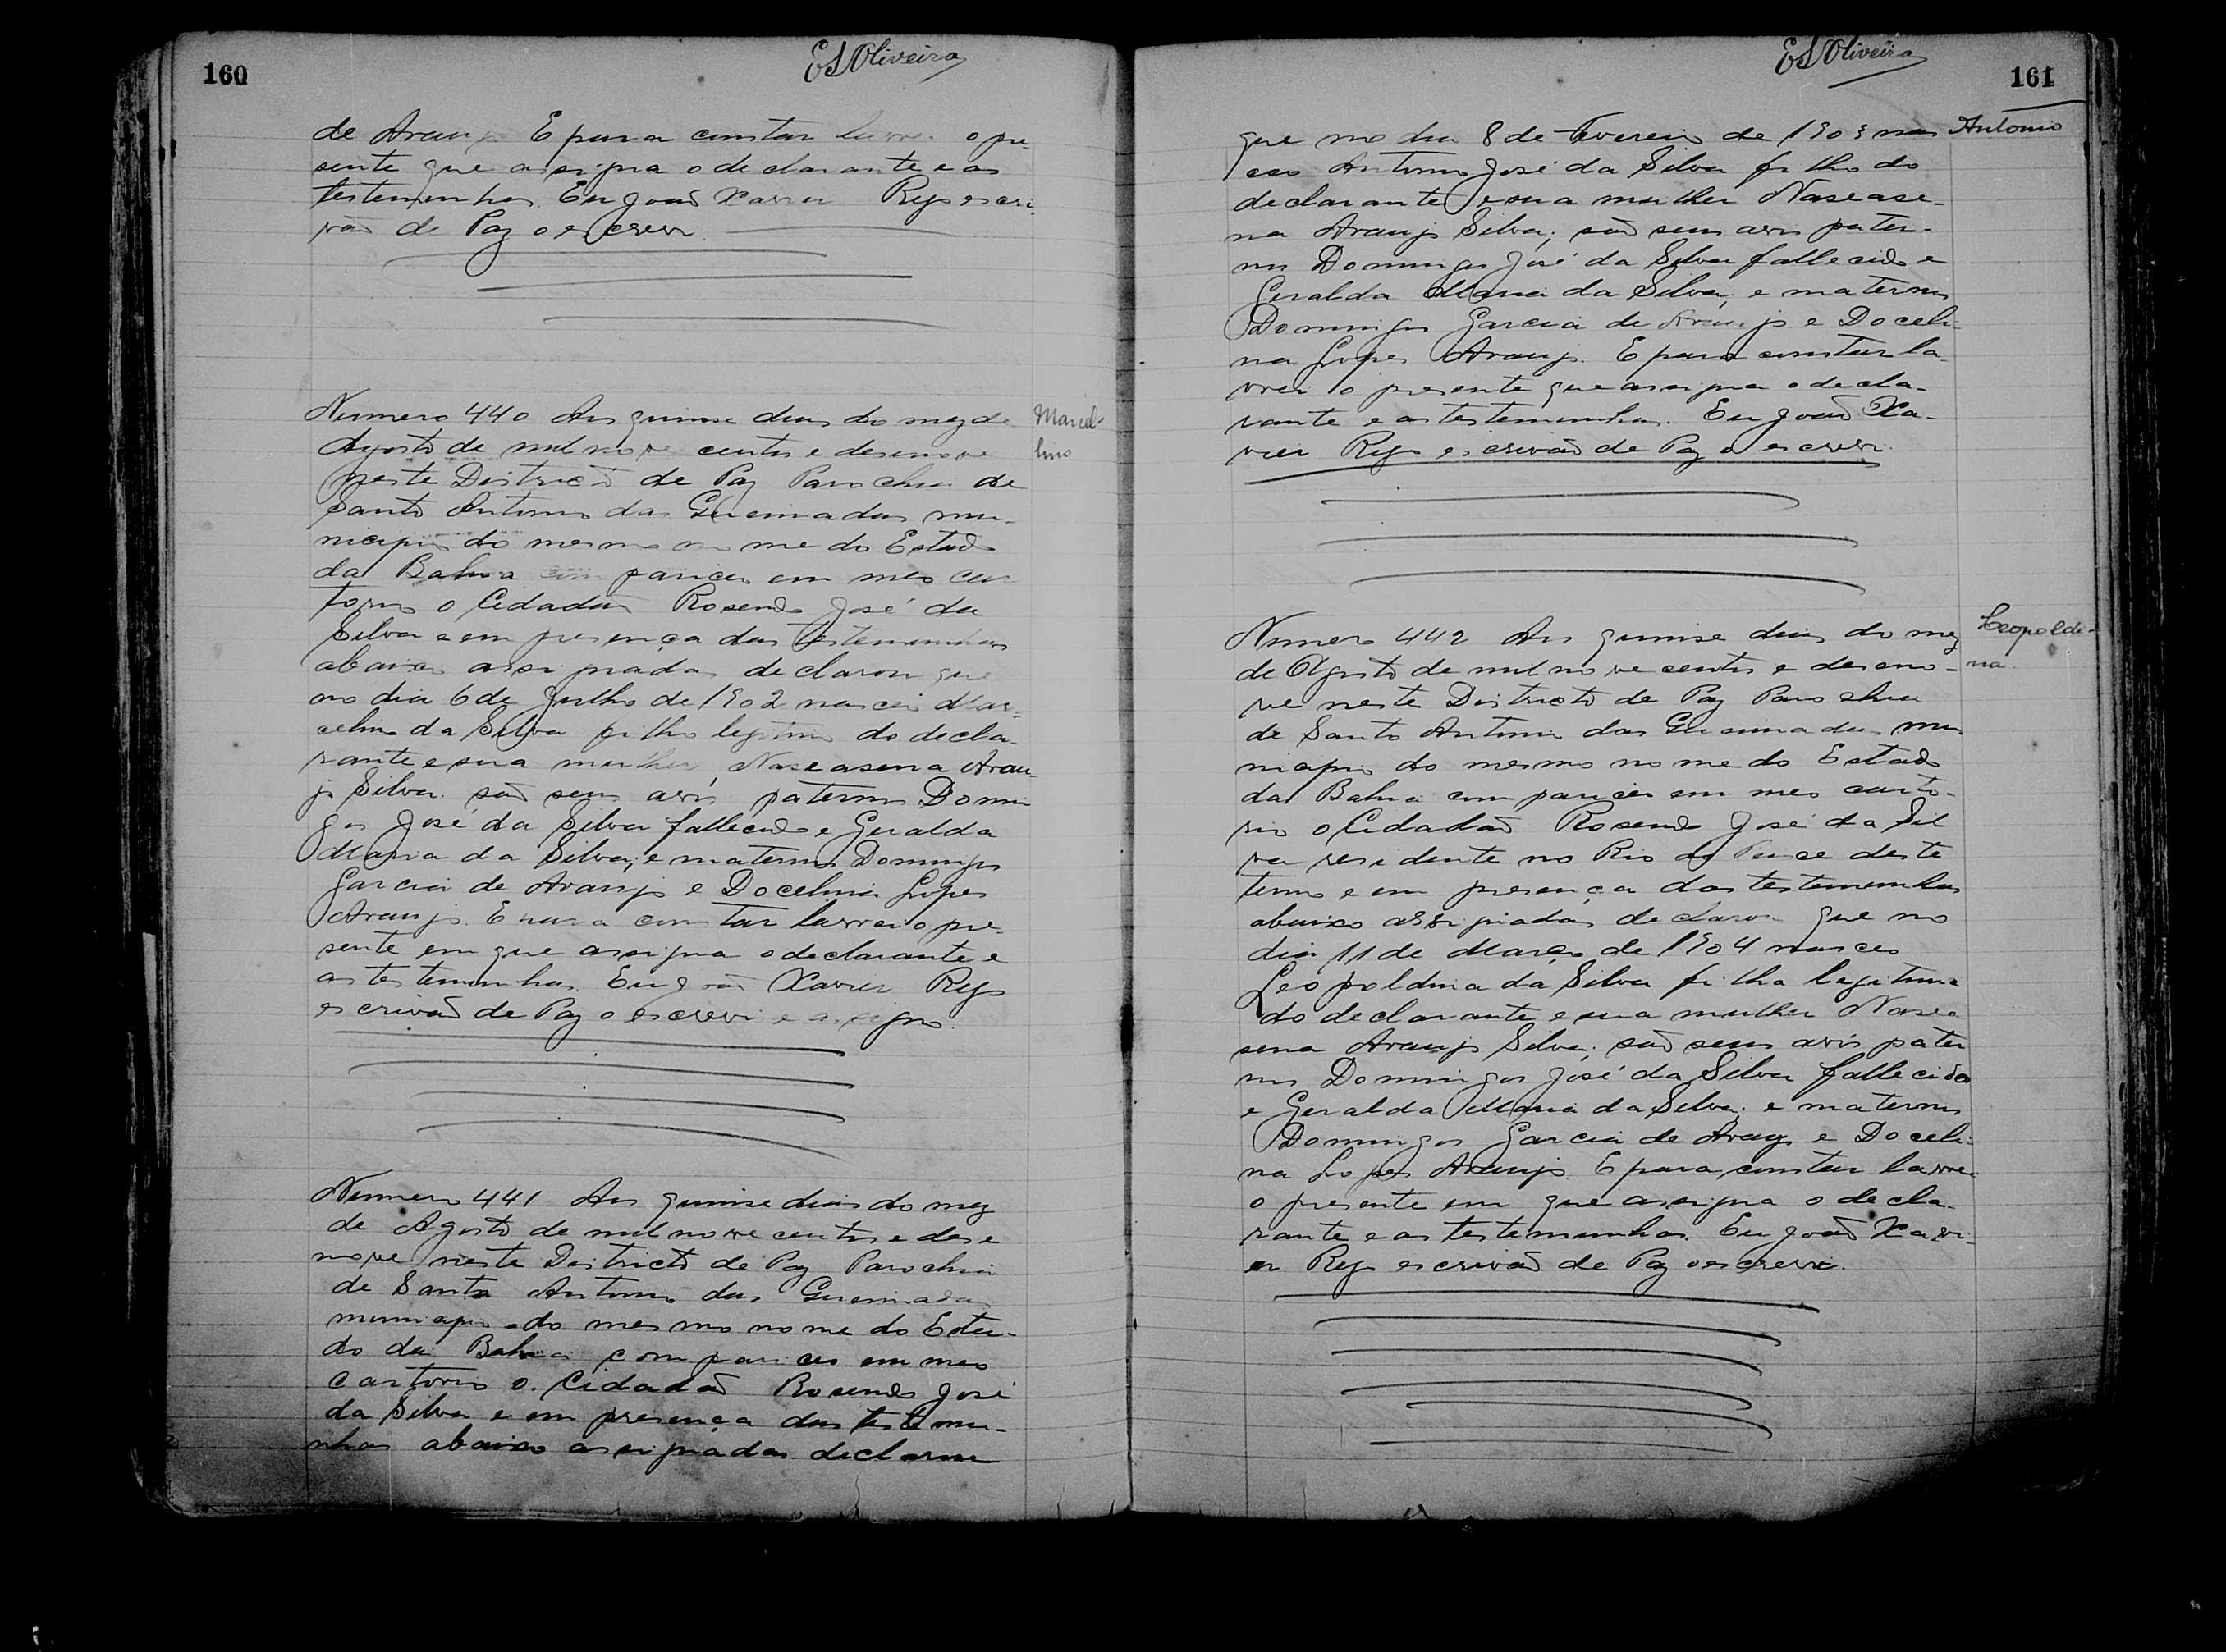 160
ESOliveira
de Araujo E para constar lavrei o pre-
sente que assigna o declarante e as
testemunhas. Eu João Xavier Rego escri-
vão de Paz o escrevi
Numero 440 Aos quinse dias do mez de
Marcel-
lino
Agosto de mil nove centos e desenove
neste Districto de Paz Parochia de
Santo Antonio das Queimadas mu-
nicipio do mesmo nome do Estado
da Bahia compareceu em meo car
torio o Cidadão Rosendo José da
Silva e em presença das testemunhas
abaixo assignadas declarou que
no dia 6 de Julho de 1902 nasceu Mar-
celino da Silva filho legitimo do decla-
rante e sua mulher, Naseasena Arau-
jo Silva. são seus avós paternos Domin
gos José da Silva fallecido e Geralda
Maria da Silva; e maternos Domingos
Garcia de Araujo e Docelina Lopes
Araujo. E para constar lavrei o pre-
sente em que assigna o declarante e
as testemunhas. Eu João Xavier Rego
escrivão de Paz o escrevi e assigno.
Numero 441 Aos quinse dias do mez
de Agosto de mil nove centos e dese
nove neste Districto de Paz Parochia
de Santo Antonio das Queimadas
municipio do mesmo nome do Esta-
do da Bahia compareceo em meo
cartorio o Cidadão Rosendo José
da Silva e em presença das testemu-
nhas abaixo assignadas declarou
ESOliveira
161
que no dia 8 de Fevereiro de 1903 nas
Antonio
ceo Antonio José da Silva filho do
declarante e sua mulher Nasease-
na Araujo Silva; são seus avos pater-
nos Domingos José da Silva fallecido e
Geralda Maria da Silva; e maternos
Domingos Garcia de Araujo e Doceli-
na Lopes Araujo. E para constar la-
vrei o presente que assigna o decla-
rante e as testemunhas. Eu João Xa-
vier Rego escrivão de Paz o escrevi.
Numero 442 Aos quinse dias do mez
Leopoldi-
na
de Agosto de mil nove centos e deseno-
ve neste Districto de Paz Parochia
de Santo Antonio das Queimadas mu
nicipio do mesmo nome do Estado
da Bahia compareceu em meo carto-
rio o Cidadão Rosendo José da Sil
va residente no Rio do Peixe deste
termo e em presença das testemunhas
abaixo assignadas declarou que no
dia 11 de Março de 1904 nasceo
Leopoldina da Silva filha legitima
do declarante e sua mulher Nasea
sena Araujo Silva; são seus avós pater
nos Domingos José da Silva fallecido
e Geralda Maria da Silva; e maternos
Domingos Garcia de Araujo e Doceli-
na Lopes Araujo. E para constar lavrei
o presente em que assigna o decla-
rante e as testemunhas. Eu João Xavi-
er Rego escrivão de Paz o escrevi.